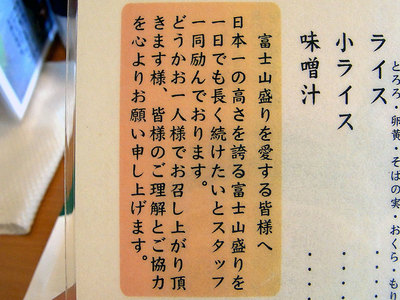 とろろ・卵黄・そばの実・おくら・もり
ライス
小ライス
味噌汁
富士山盛りを愛する皆様へ
日本一の高さを誇る富士山盛りを
一日でも長く続けたいとスタッフ
一同励んでおります。
どうかお一人様でお召し上がり頂
きます様、皆様のご理解とご協力
を心よりお願い申し上げます。